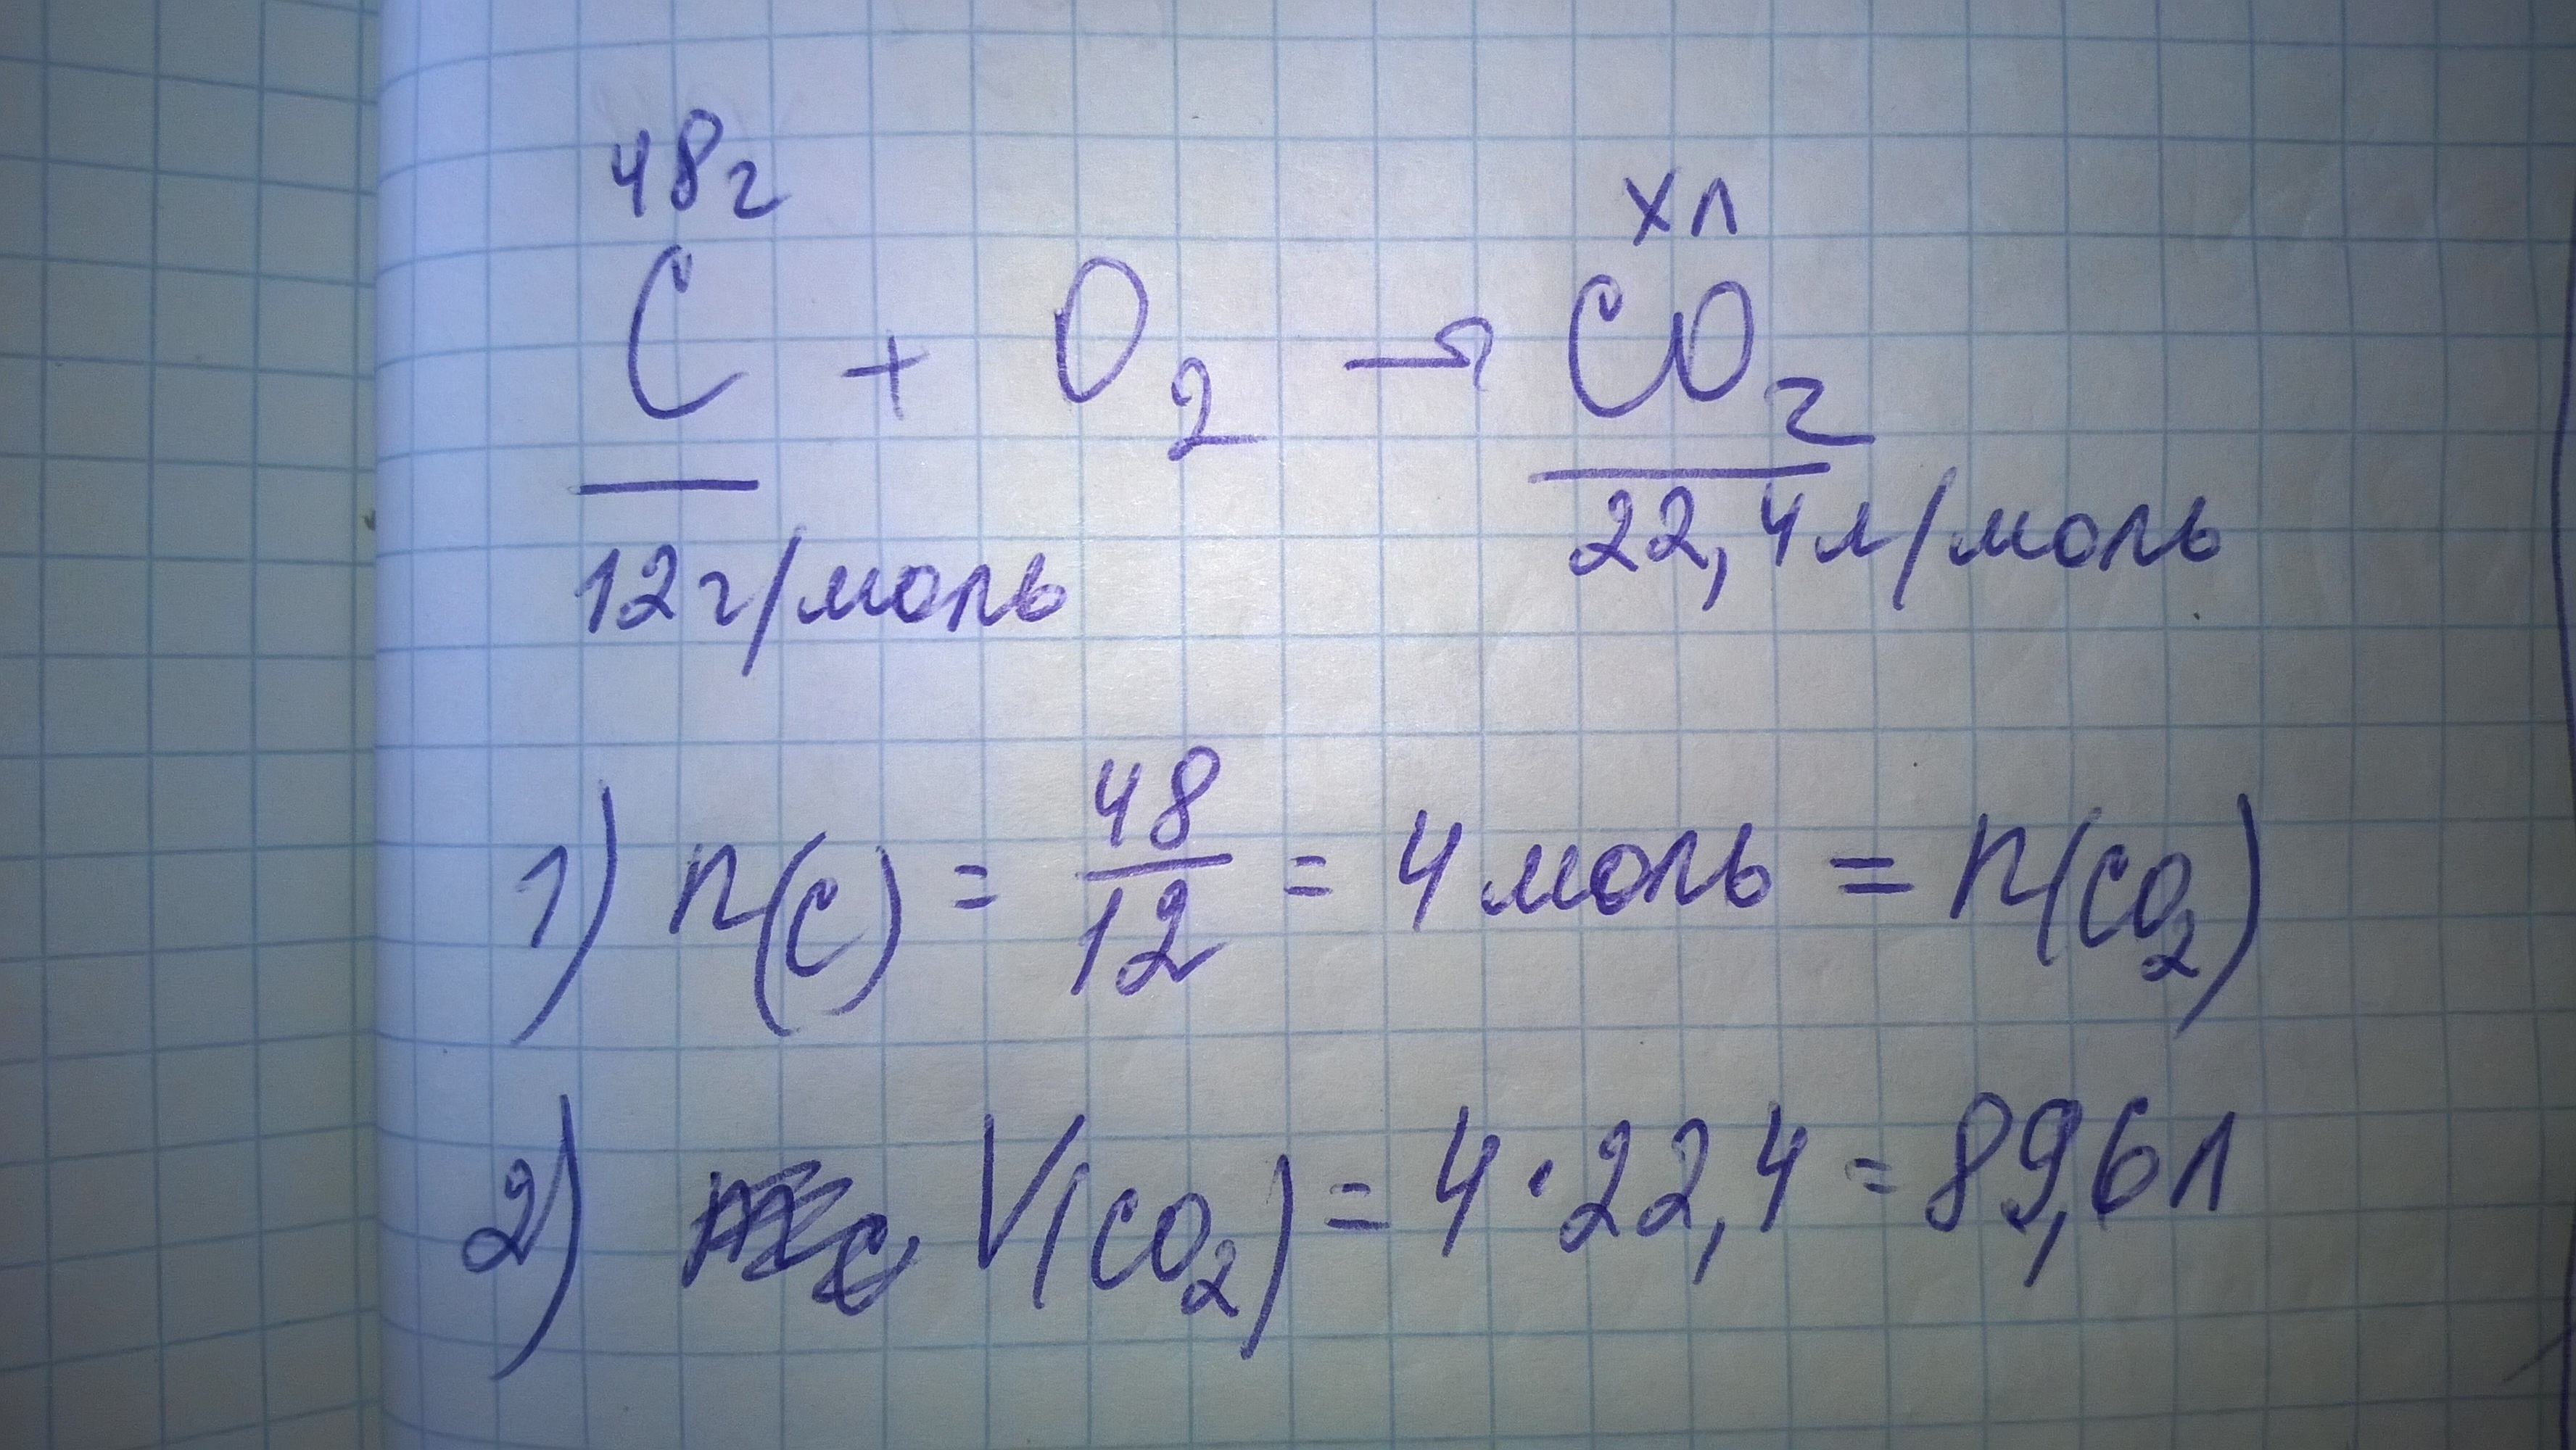 48г хл
C + O₂ → CO₂
12г/моль 22,4л/моль
1) n(C) = 48/12 = 4 моль = n(CO₂)
2) V(CO₂) = 4 · 22,4 = 89,6л